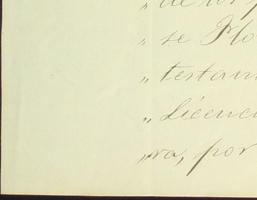 „ se Mo
„ testam
„ Licenci
„ ra, por